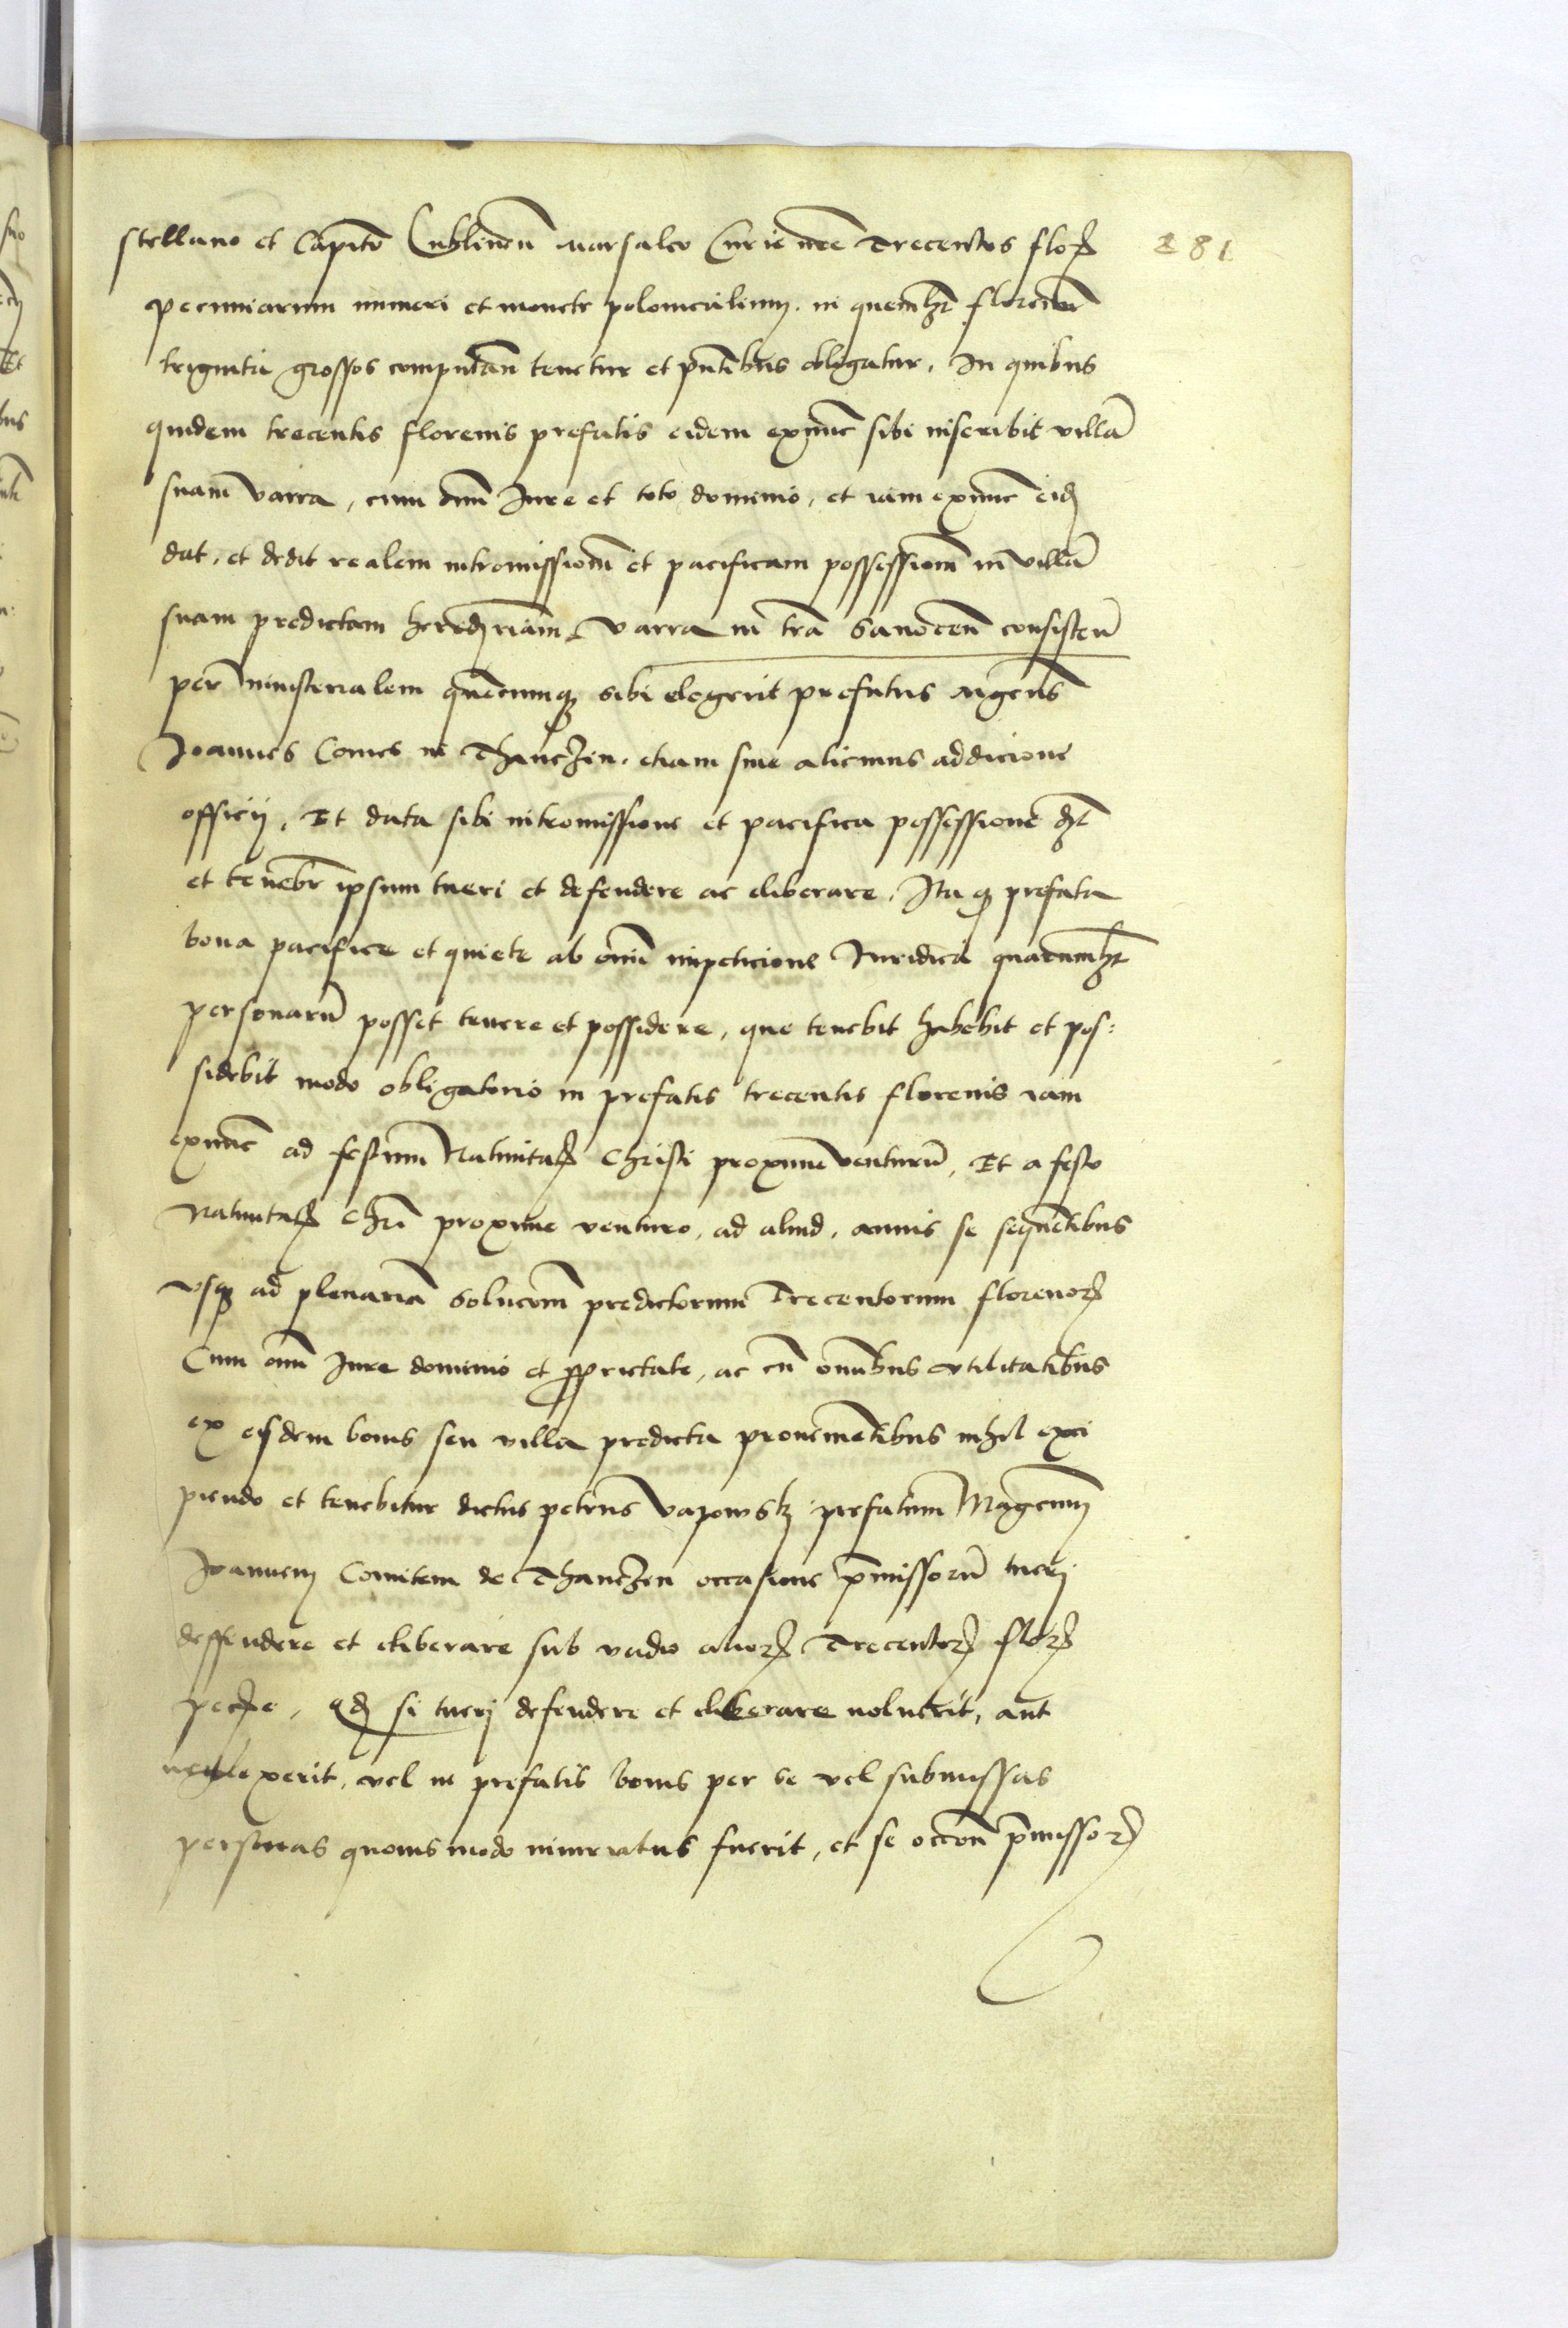 stellano et Capito Lublinen Marsalco Curie nre Trecentos flor 281
pecuniarum numeri et monete polonicalium. in quemlibet florenum
triginta grossos computan tenetur et pntibus obligatur, In quibus
quidem trecentis florenis prefatis eidem exnunc sibi inscribit villa
suam Varra, cum omni Iure et toto dominio, et iam exnunc eid
dat, et dedit realem intromissiom et pacificam possessiom in villa
suam predictam heredriam Varra in tra Sanocen consisten
per ministerialem quecumq sibi elegerit prefatus Mgcus
Joannes Comes in Thanczin. etiam sine alicuius addicione
officij, Et data sibi intromissione et pacifica possessione dt
et tenebr ipsum tueri et defendere ac eliberare, Ita q prefata
bona pacifice et quiete ab omi impeticione Iuridica quarumlt
personaru posset tenere et possidere, que tenebit habebit et pos:
sidebit modo obligatorio in prefatis trecentis florenis iam
exnunc ad festum Natiuitat Christi proxime venturu, Et a festo
Natiuitat Chri proxime venturo, ad aliud, annis se sequetibus
vsq ad plenaria Solucom predictorum Trecentorum florenor
Cum omi Iure dominio et pprietate, ac cu omibus vtilitatibus
ex eisdem bonis seu villa predicta prouenietibus nihil exci
piendo et tenebitur dictus petrus Vapowsky prefatum Magcum
Joannem Comitem de Thanczin occasione pmissoru tuerj
deffendere et eliberare sub vadio alior Trecentor flor
pecie, qd si tuerj defendere et eliberare noluerit, aut
neglexerit, vel in prefatis bonis per se vel submissas
personas quouis modo iniuriatus fuerit, et se occon pmissor